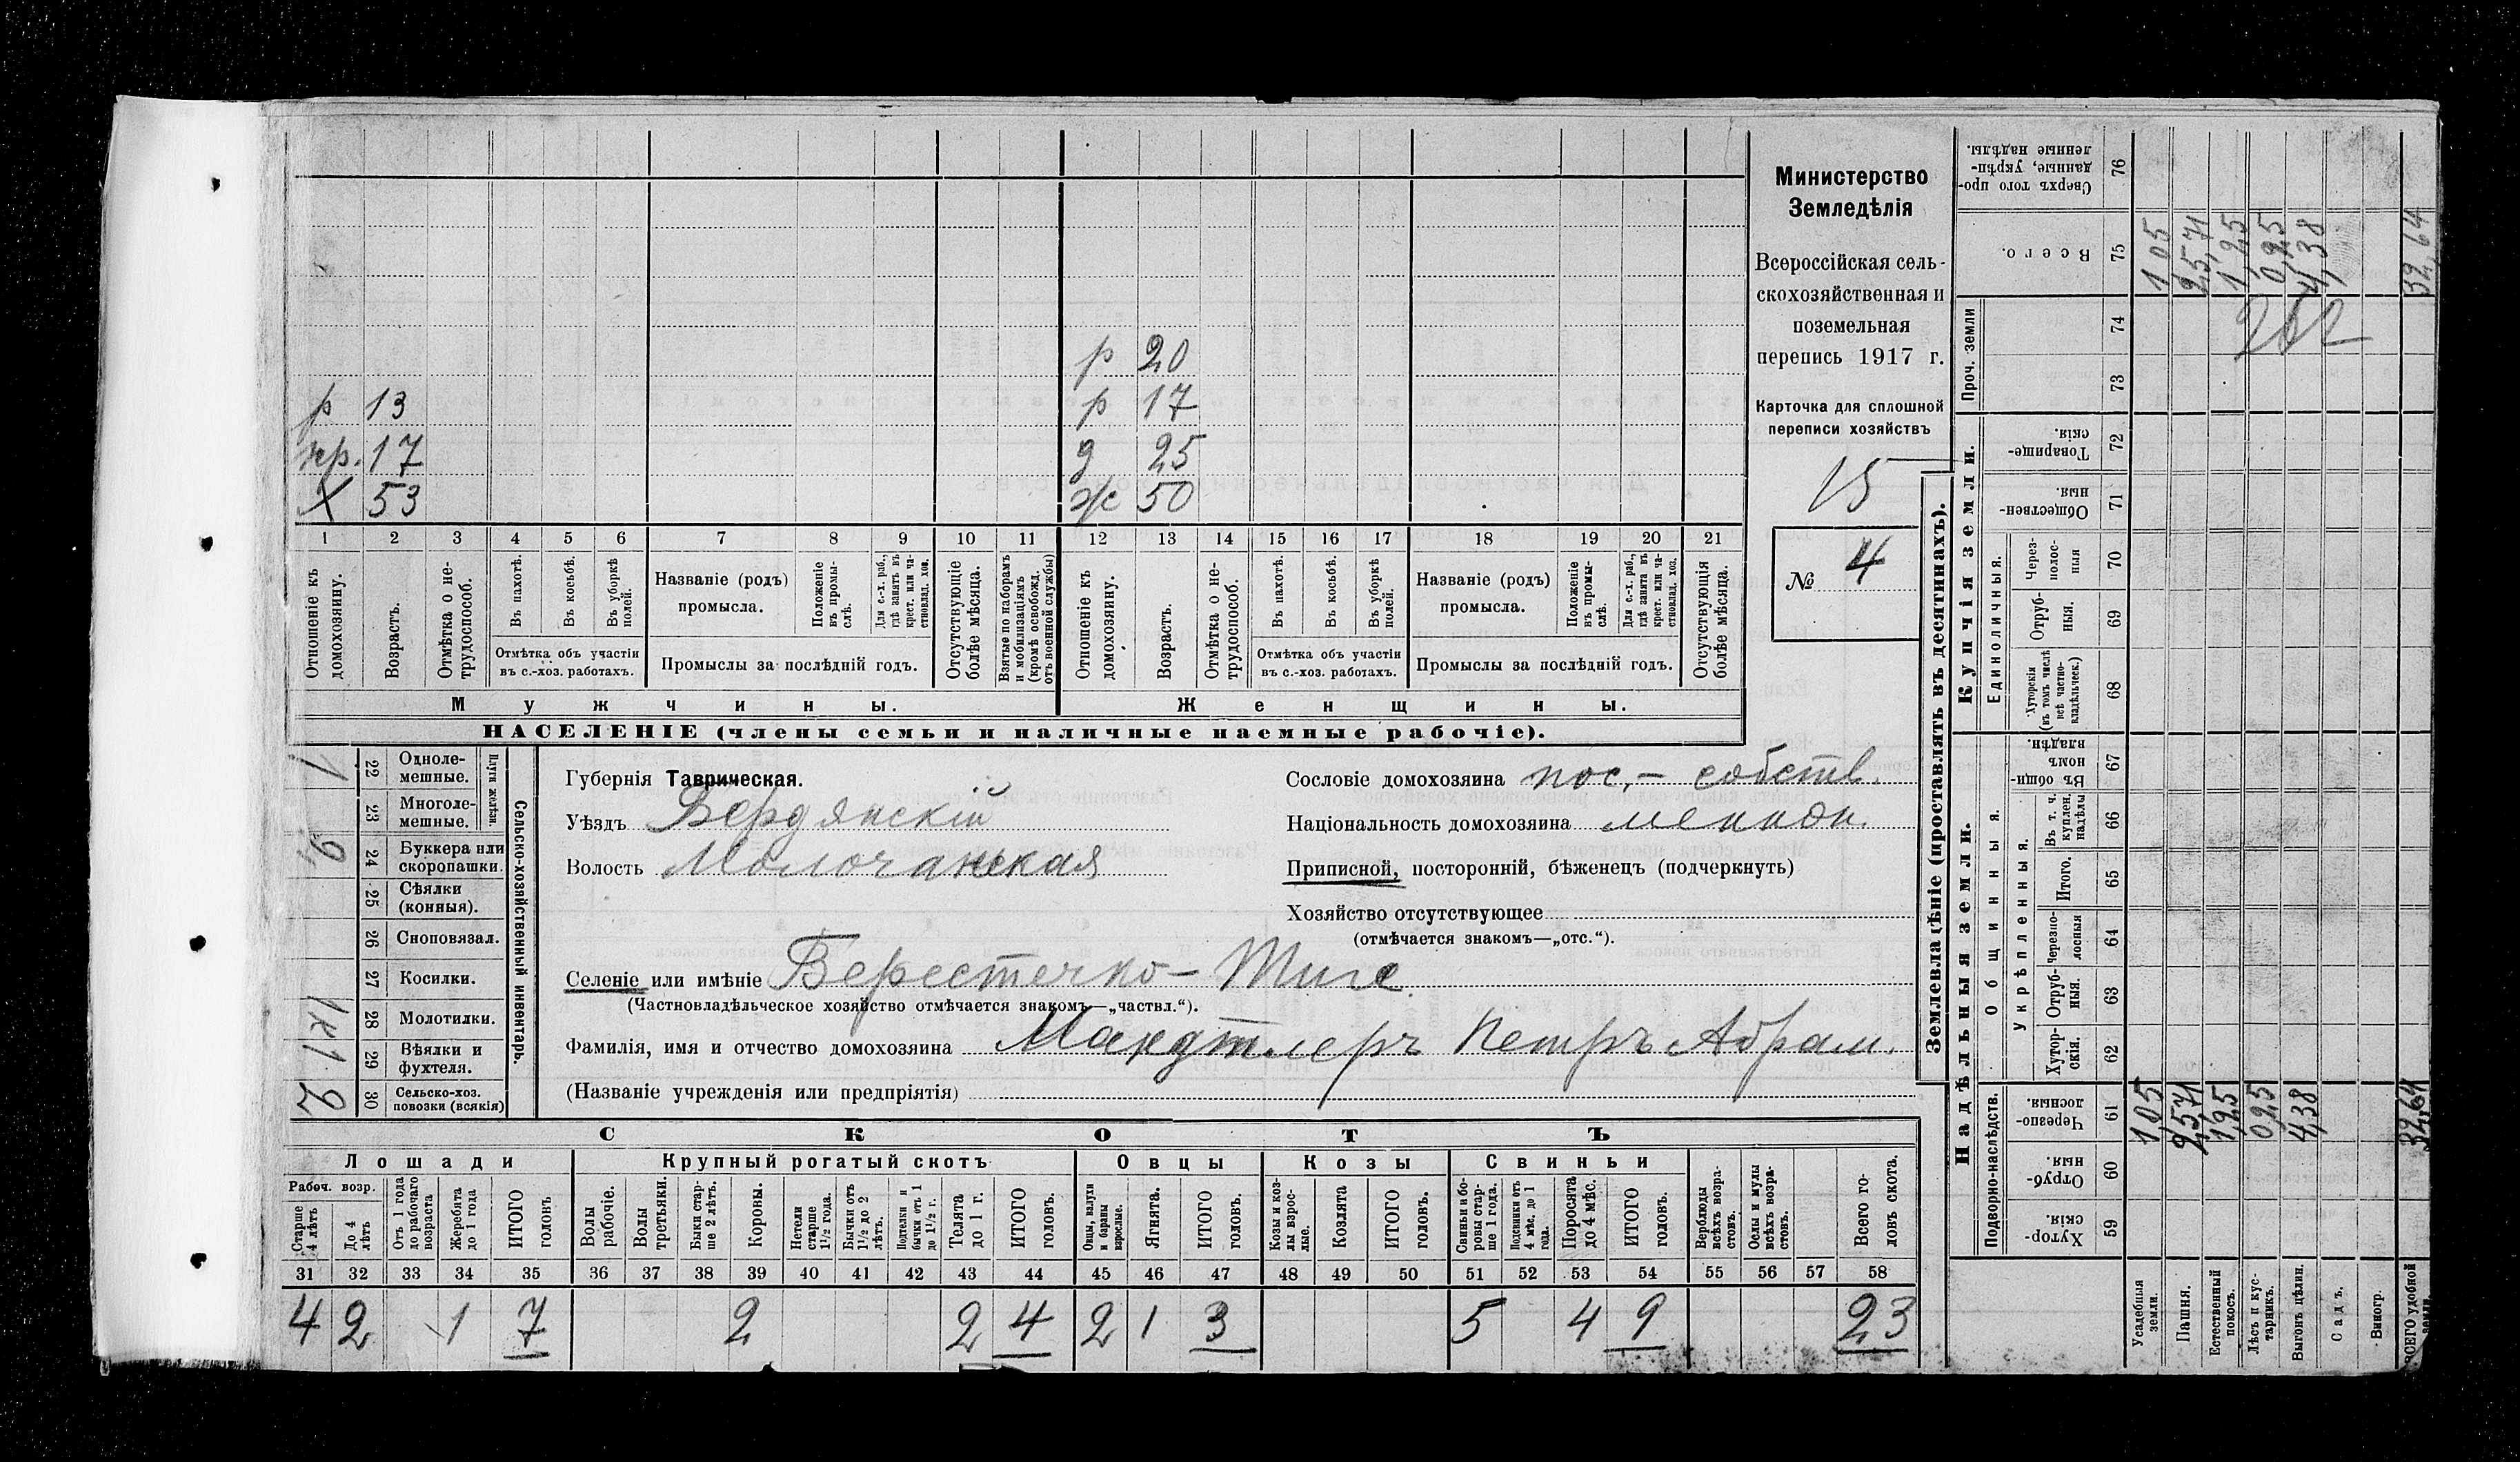 р 20
р 13 р 17
пр. 17 д 25
Х 53 ж 50
1 2 3 4 5 6 7 8 9 10 11 12 13 14 15 16 17 18 19 20 21
Отношеніе къ домохозяину.
Возрастъ.
Отмѣтка о не-
трудоспособ.
Въ пахотѣ.
Въ косьбѣ.
Въ уборкѣ
полей.
Отмѣтка объ участіи
въ с.-хоз. работахъ.
Названіе (родъ)
промысла.
Положеніе
въ промы-
слѣ.
Для с.-х. раб.,
гдѣ занятъ въ
крест. или ча-
стновлад. хоз.
Промыслы за послѣдній годъ.
Отсутствующіе
болѣе мѣсяца.
Взятые по наборамъ
и мобилизаціямъ
(кромѣ освобожд.
отъ военной службы)
Отношеніе къ
домохозяину.
Возрастъ.
Отмѣтка о не-
трудоспособ.
Въ пахотѣ.
Въ косьбѣ.
Въ уборкѣ
полей.
Отмѣтка объ участіи
въ с.-хоз. работахъ.
Названіе (родъ)
промысла.
Положеніе
въ промы-
слѣ.
Для с.-х. раб.,
гдѣ занята въ
крест. или ча-
стновлад. хоз.
Промыслы за послѣдній годъ.
Отсутствующія
болѣе мѣсяца.
Мужчины. Женщины.
НАСЕЛЕНІЕ (члены семьи и наличные наемные рабочіе).
Министерство
Земледѣлія
Всероссійская сель-
скохозяйственная и
поземельная
перепись 1917 г.
Карточка для сплошной
переписи хозяйствъ
15
№ 4
Сельско-хозяйственный инвентарь.
Плуги желѣзн.
22 Одноле-
мешные.
1
23 Многоле-
мешные.
24 Буккера или
скоропашки.
2
25 Сѣялки
(конныя).
26 Сноповязал.
27 Косилки.
28 Молотилки.
1к
29 Вѣялки и
фухтеля.
1
30 Сельско-хоз.
повозки (всякія)
2
Губернія Таврическая.
Уѣздъ Бердянскій
Волость Молочанская
Сословіе домохозяина пос.- собств.
Національность домохозяина меннон.
Приписной, посторонній, бѣженецъ (подчеркнуть)
Хозяйство отсутствующее
(отмѣчается знакомъ—„отс.“).
Селеніе или имѣніе Берестечко- Тиге
(Частновладѣльческое хозяйство отмѣчается знакомъ—„частвл.“).
Фамилія, имя и отчество домохозяина Мандтлеръ Петръ Абрам.
(Названіе учрежденія или предпріятія)
СКОТЪ
Лошади Крупный рогатый скотъ Овцы Козы Свиньи
Рабоч. возр.
Старше
4 лѣтъ
До 4
лѣтъ
Отъ 1 года
до рабочаго
возраста
Жеребята
до 1 года
ИТОГО
головъ
Волы
рабочіе.
Волы
третьяки.
Быки стар-
ше 2 лѣтъ.
Коровы.
Нетели
старше
1½ года.
Бычки отъ
1½ до 2
лѣтъ.
Подтелки и
бычки отъ 1
до 1½ г.
Телята
до 1 г.
ИТОГО
головъ.
Овцы, валухи
и бараны
взрослые.
Ягнята.
ИТОГО
головъ.
Козы и коз-
лы взрос-
лые.
Козлята
ИТОГО
головъ.
Свиньи и бо-
ровы стар-
ше 1 года.
Подсвинки отъ
4 мѣс. до 1
года.
Поросята
до 4 мѣс.
ИТОГО
головъ.
Верблюды
всѣхъ возра-
стовъ.
Ослы и мулы
всѣхъ возра-
стовъ.
Всего го-
ловъ скота.
31 32 33 34 35 36 37 38 39 40 41 42 43 44 45 46 47 48 49 50 51 52 53 54 55 56 57 58
4 2 1 7 2 2 4 2 1 3 5 4 9 23
Землевладѣніе (проставлять въ десятинахъ).
Надѣльныя земли. Купчія земли. Проч. земли
Подворно-наслѣдств. Общинныя. Единоличныя.
Укрѣпленныя.
Хутор-
скія. 59
Отруб-
ныя. 60
Черезпо-
лосныя. 61
Хутор-
скія. 62
Отруб-
ныя. 63
Черезпо-
лосныя 64
Итого. 65
Въ т. ч.
куплен.
надѣлы 66
Въ общин-
номъ
владѣн. 67
Хуторскія
(въ томъ числѣ
всѣ частно-
владѣльческ.) 68
Отруб-
ныя. 69
Через-
полос-
ныя 70
Обществен-
ныя. 71
Товарище-
скія. 72
73
74
Всего. 75
Сверхъ того про-
данные, укрѣп-
ленные надѣлы. 76
Усадебныя
земли. 1,05 1 05
Пашня. 25,71 25,71
Естественный
покосъ. 1,25 1,25
Лѣсъ и кус-
тарникъ. 0,25 0,25
Выгонъ цѣлин. 4,38 4,38
Садъ.
Виногр.
ВСЕГО удобной
земли. 32,64 32,64